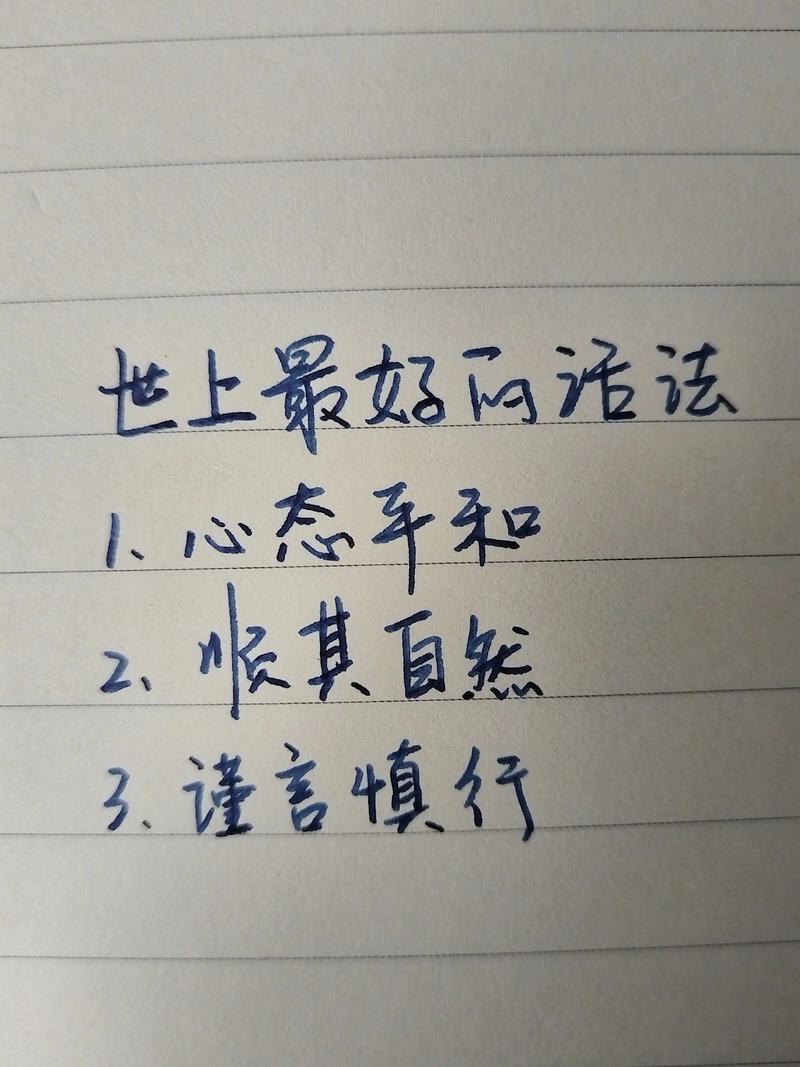 世上最好的活法
1、心态平和
2、顺其自然
3、谨言慎行